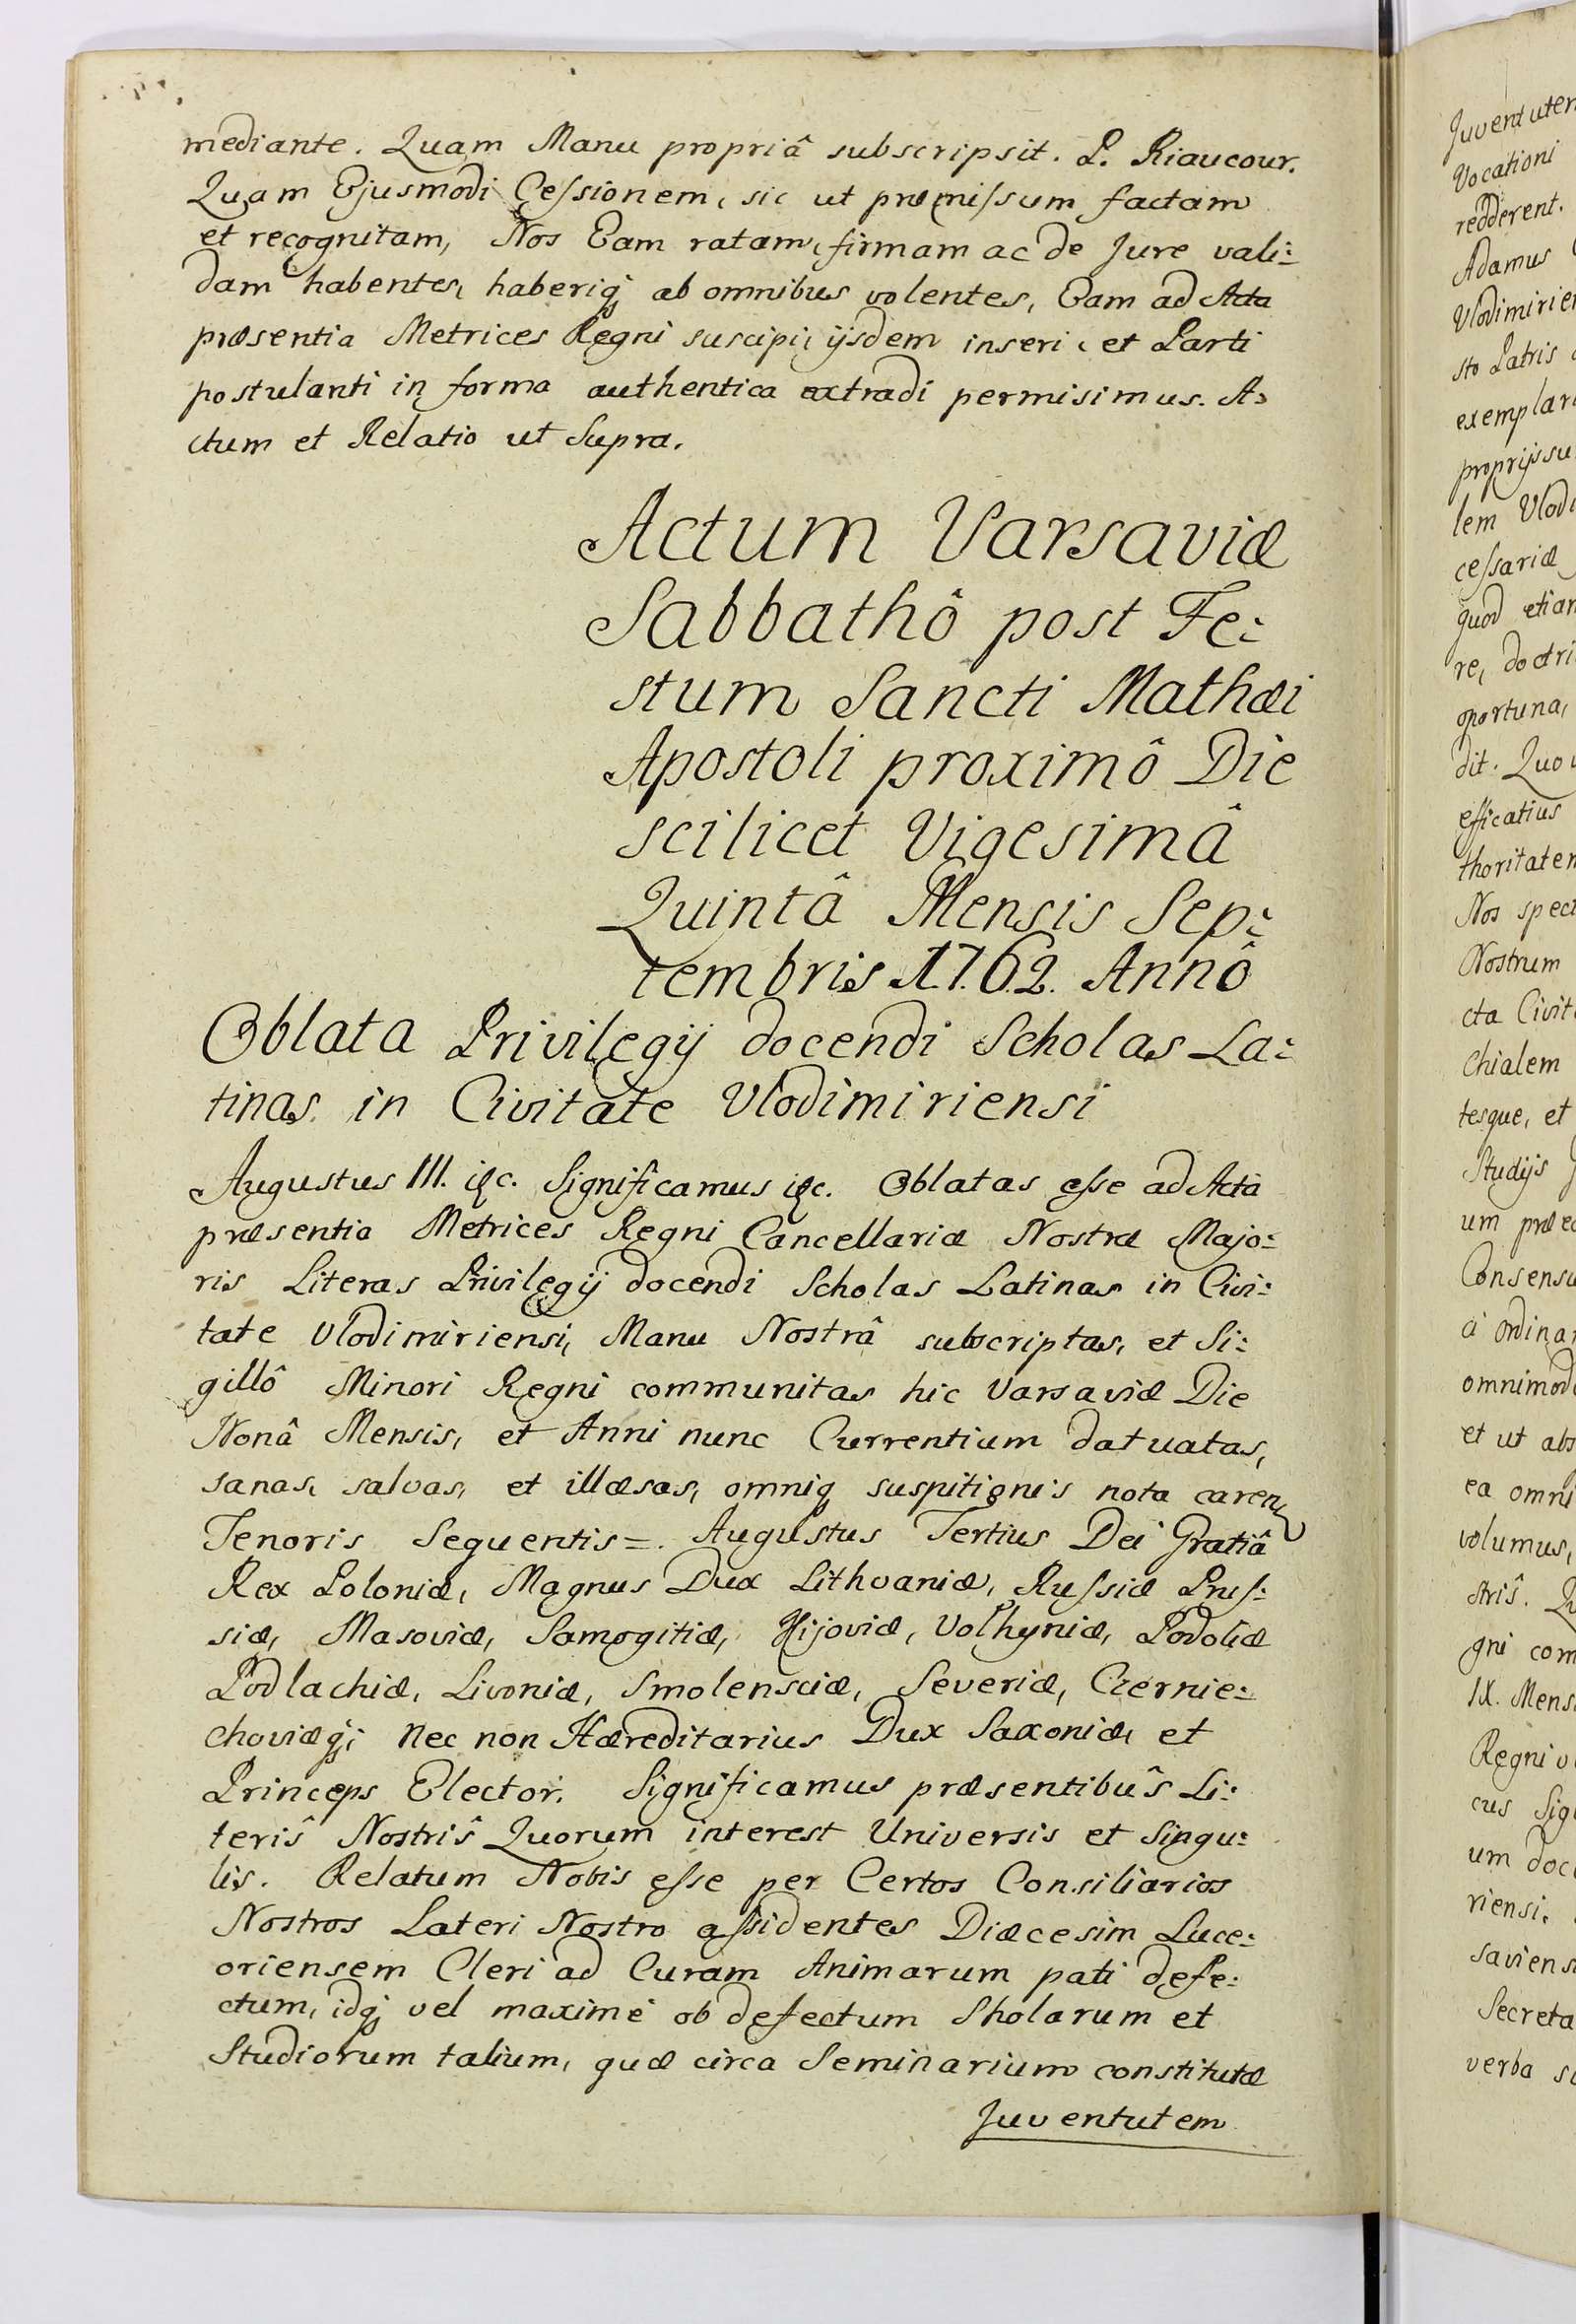 mediante. Quam Manu propriâ subscripsit. P. Riaucour.
Quam Ejusmodi Ceſsionem, sic ut præmiſsum factam
et recognitam, Nos Eam ratam, firmam ac de Jure vali:
dam habentes, haberiq̃ ab omnibus volentes, Eam ad Acta
præsentia Metrices Regni suscipi, ijsdem inseri, et Parti
postulanti in forma authentica extradi permisimus. A:
ctum et Relatio ut Supra.
Actum Varsaviæ
Sabbathô post Fe:
stum Sancti Mathæi
Apostoli proximô Die
scilicet Vigesimâ
Quintâ Mensis Sep:
tembris 1762. Annô
Oblata Privilegij docendi Scholas La:
tinas in Civitate Vlodimiriensi
Augustus III. &c. Significamus &c. Oblatas eſse ad Acta
præsentia Metrices Regni Cancellariæ Nostræ Majo:
ris Literas Privilegij docendi Scholas Latinas in Civi:
tate Vlodimiriensi, Manu Nostrâ subscriptas, et Si:
gillô Minori Regni communitas hic Varsaviæ Die
Nonâ Mensis, et Anni nunc Currentium datuatas,
sanas, salvas, et illæsas, omniq̃ suspitionis nota caren
Tenoris Sequentis =. Augustus Tertius Dei Gratiâ
Rex Poloniæ, Magnus Dux Lithvaniæ, Ruſsiæ Pruſ:
siæ, Masoviæ, Samogitiæ, Kijoviæ, Volhyniæ, Podoliæ
Podlachiæ, Livoniæ, Smolensciæ, Severiæ, Czernie:
choviæq̃; nec non Hæreditarius Dux Saxoniæ, et
Princeps Elector. Significamus præsentibuŝ Li:
teriŝ Nostriŝ Quorum interest Universis et Singu:
lis. Relatum Nobis eſse per Certos Consiliarios
Nostros Lateri Nostro aſsidentes Diæcesim Luce:
oriensem Cleri ad Curam Animarum pati defe:
ctum, idq̃ vel maximè ob defectum Sholarum et
Studiorum talium, quæ circa Seminarium constitutæ
Juventutem
Juventutem
Vocationi
redderent.
Adamus
sto Patris
lem
ceſsariæ
quod
re,
oportuna,
dit.
efficatius
Nos
Nostrum
cta
chialem
tesque, et
Studijs
um
à
et ut
ea
volumus,
striŝ.
gni
IX.
Regni
cus
um
riensi.
verba